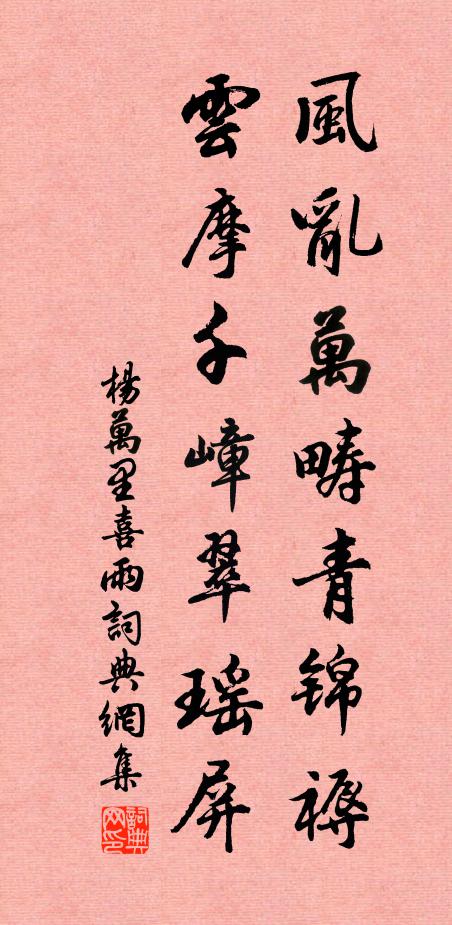 風亂萬疇青錦褥
雲摩千嶂翠瑤屏
楊萬里喜雨詞典網集
詞典网印